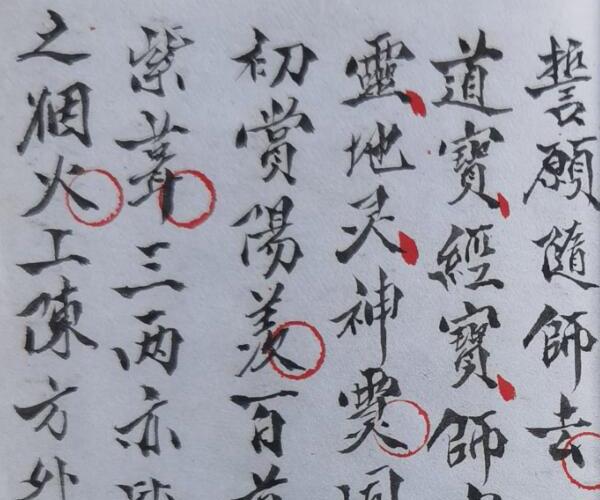 誓願隨師去
道寶經寶師
靈地灵神
初賞陽羨百
紫茸三两亦
之烟火上陳方外